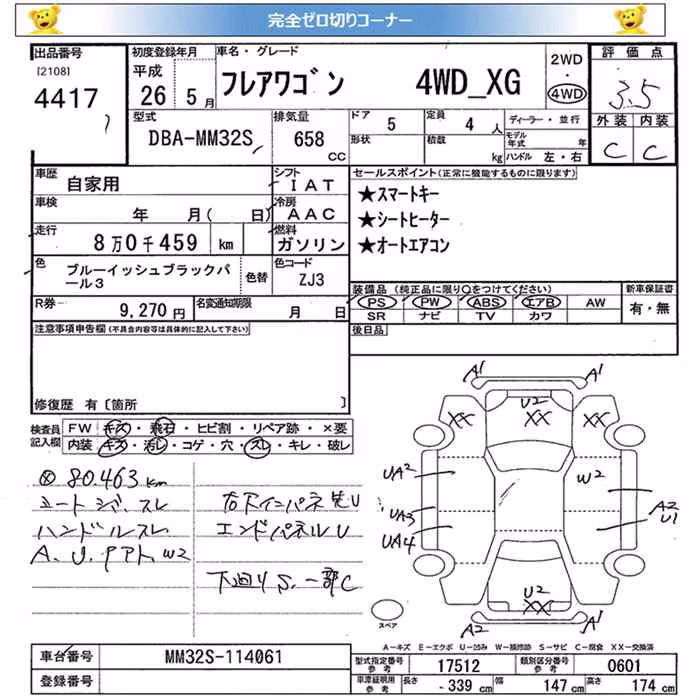 完全ゼロ切りコーナー
出品番号
[2108]
4417
初度登録年月
平成
26 5月
車名・グレード
フレアワゴン 4WD_XG
2WD
・
4WD
評価点
3.5
外装 内装
C C
型式
DBA-MM32S
排気量
658
CC
ドア 5
形状
定員 4 人
積載 kg
ディーラー・並行
モデル年式 年
ハンドル 左・右
車歴
自家用
シフト
IAT
車検
年 月( 日)
冷房
AAC
走行
8万0千459 km
燃料
ガソリン
色
ブルーイッシュブラックパール3
色替
色コード
ZJ3
R券
9,270円
名変通知期限
月 日
セールスポイント(正常に機能するものに限ります)
★スマートキー
★シートヒーター
★オートエアコン
装備品 (純正品に限り○をつけてください)
PS PW ABS エアB AW
SR ナビ TV カワ
新車保証書
有・無
後日品
注意事項申告欄(不具合内容等は具体的に記入して下さい)
修復歴 有〔箇所 〕
検査員記入欄
FW キズ・飛石・ヒビ割・リペア跡・×要
内装 キズ・汚レ・コゲ・穴・スレ・キレ・破レ
80.463 km
シートシワ、スレ
ハンドルスレ
A、U、Pアト、W2
右下インパネ U
エンドパネルU
下廻りS、一部C
A1 A1
U2
XX XX XX
UA2 W2
UA3
UA4
A2
U1
U2
XX
A2 A1
スペア
A-キズ E-エクボ U-凹み W-補修跡 S-サビ C-腐食 XX-交換済
車台番号
MM32S-114061
登録番号
型式指定番号
参考
17512
類別区分番号
参考
0601
車漕証明用
参考
長さ 339 cm 幅 147 cm 高さ 174 cm